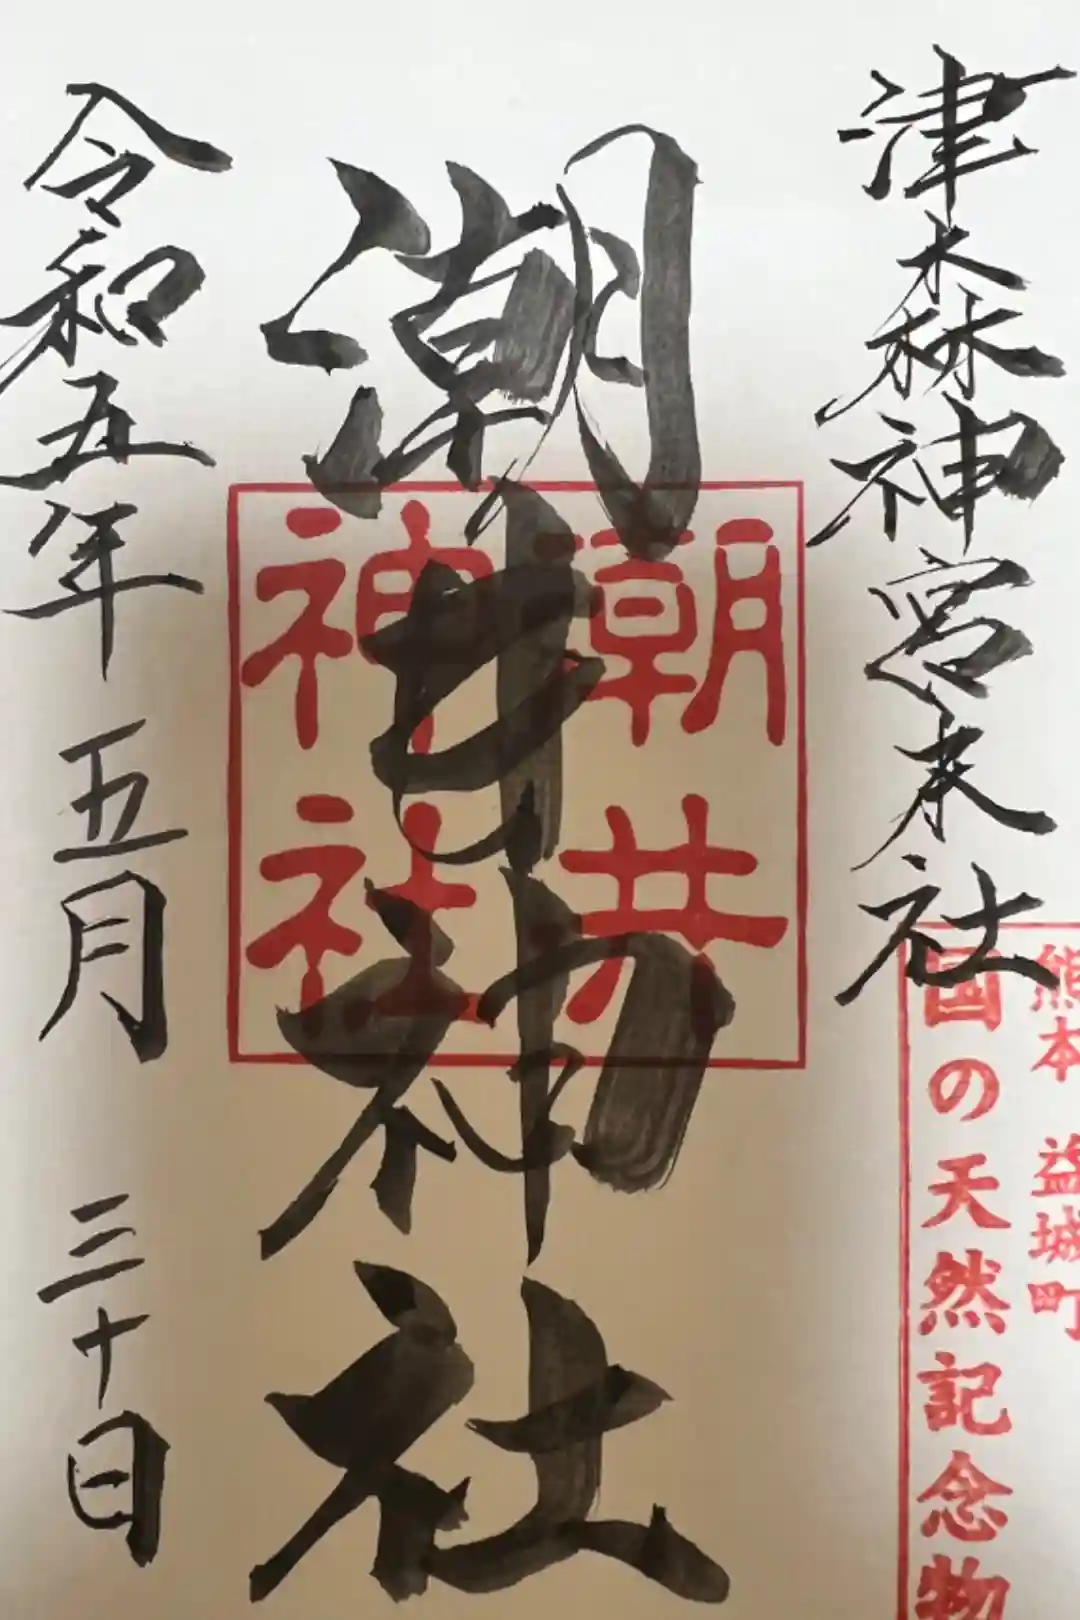 津森神宮末社
熊本 益城町
国の天然記念物
潮井神社
潮井
神社
令和五年 五月 三十日